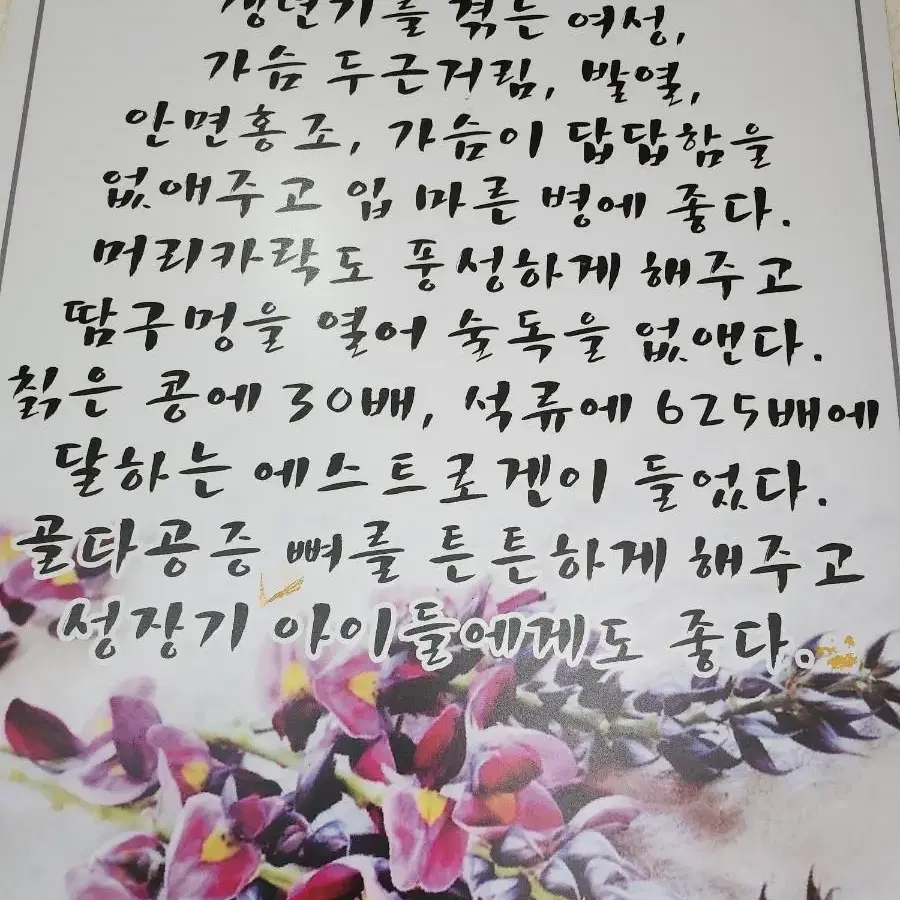 갱년기를 겪는 여성,
가슴 두근거림, 발열,
안면홍조, 가슴이 답답함을
없애주고 입 마른 병에 좋다.
머리카락도 풍성하게 해주고
땀구멍을 열어 술독을 없앤다.
칡은 콩에 30배, 석류에 625배에
달하는 에스트로겐이 들었다.
골다공증 뼈를 튼튼하게 해주고
성장기 아이들에게도 좋다.